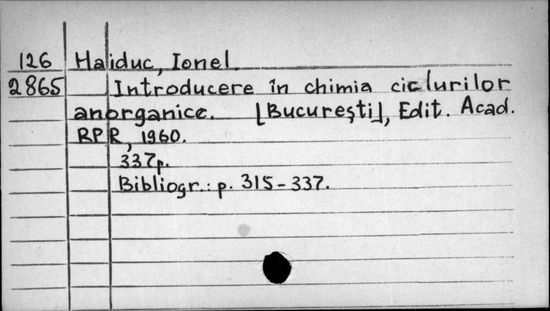 126 Haiduc, Ionel.
2865 Introducere în chimia ciclurilor
anorganice. [București], Edit. Acad.
RPR, 1960.
337p.
Bibliogr.: p. 315-337.